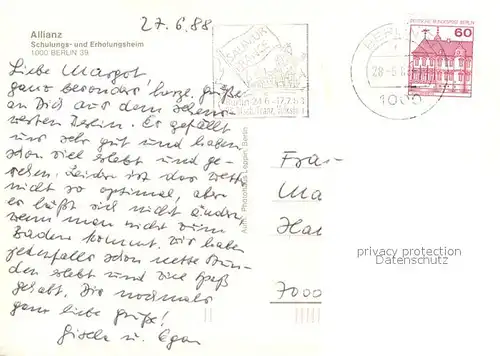 27.6.88
Allianz
Schulungs- und Erholungsheim
1000 BERLIN 39
Liebe Margot,
ganz besonders herzl. Grüße
an Dich aus dem sehens-
werten Berlin. Es gefällt
uns sehr gut und haben
schon viel erlebt und ge-
sehen. Leider ist das Wetter
nicht so optimal, aber
es läßt sich nicht ändern,
wenn man nicht zum
Baden kommt. Wir haben
jedenfalls schon nette Stun-
den erlebt und viel Spaß
gehabt. Dir nochmals
ganz liebe Grüße!
Gisela u. Egon
BERLIN
1000
DEUTSCHE BUNDESPOST BERLIN
60
Photohaus Loppin, Berlin
Frau
Ma
Ha
7000
privacy protection
Datenschutz